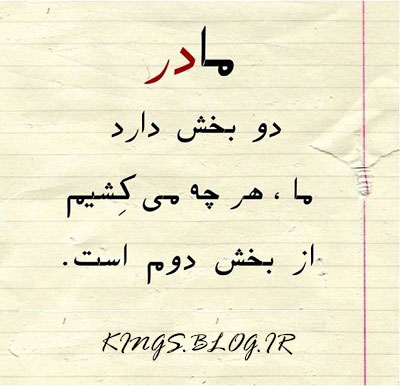 مادر
دو بخش دارد
ما ، هر چه می کِشیم
از بخش دوم است.
KINGS.BLOG.IR